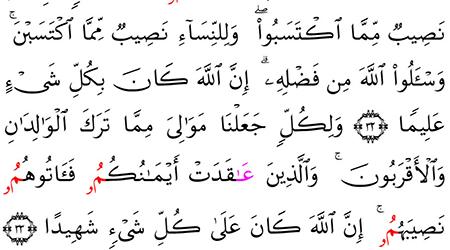 نَصِيبٌ مِّمَّا ٱكْتَسَبُوا۟ ۖ وَلِلنِّسَآءِ نَصِيبٌ مِّمَّا ٱكْتَسَبْنَ ۚ
وَسْـَٔلُوا۟ ٱللَّهَ مِن فَضْلِهِۦٓ ۗ إِنَّ ٱللَّهَ كَانَ بِكُلِّ شَىْءٍ
عَلِيمًا ﴿٣٢﴾ وَلِكُلٍّ جَعَلْنَا مَوَٰلِىَ مِمَّا تَرَكَ ٱلْوَٰلِدَانِ
وَٱلْأَقْرَبُونَ ۚ وَٱلَّذِينَ عَـٰقَدَتْ أَيْمَـٰنُكُمُۥ فَـَٔاتُوهُمُۥ
نَصِيبَهُمُۥٓ ۚ إِنَّ ٱللَّهَ كَانَ عَلَىٰ كُلِّ شَىْءٍ شَهِيدًا ﴿٣٣﴾